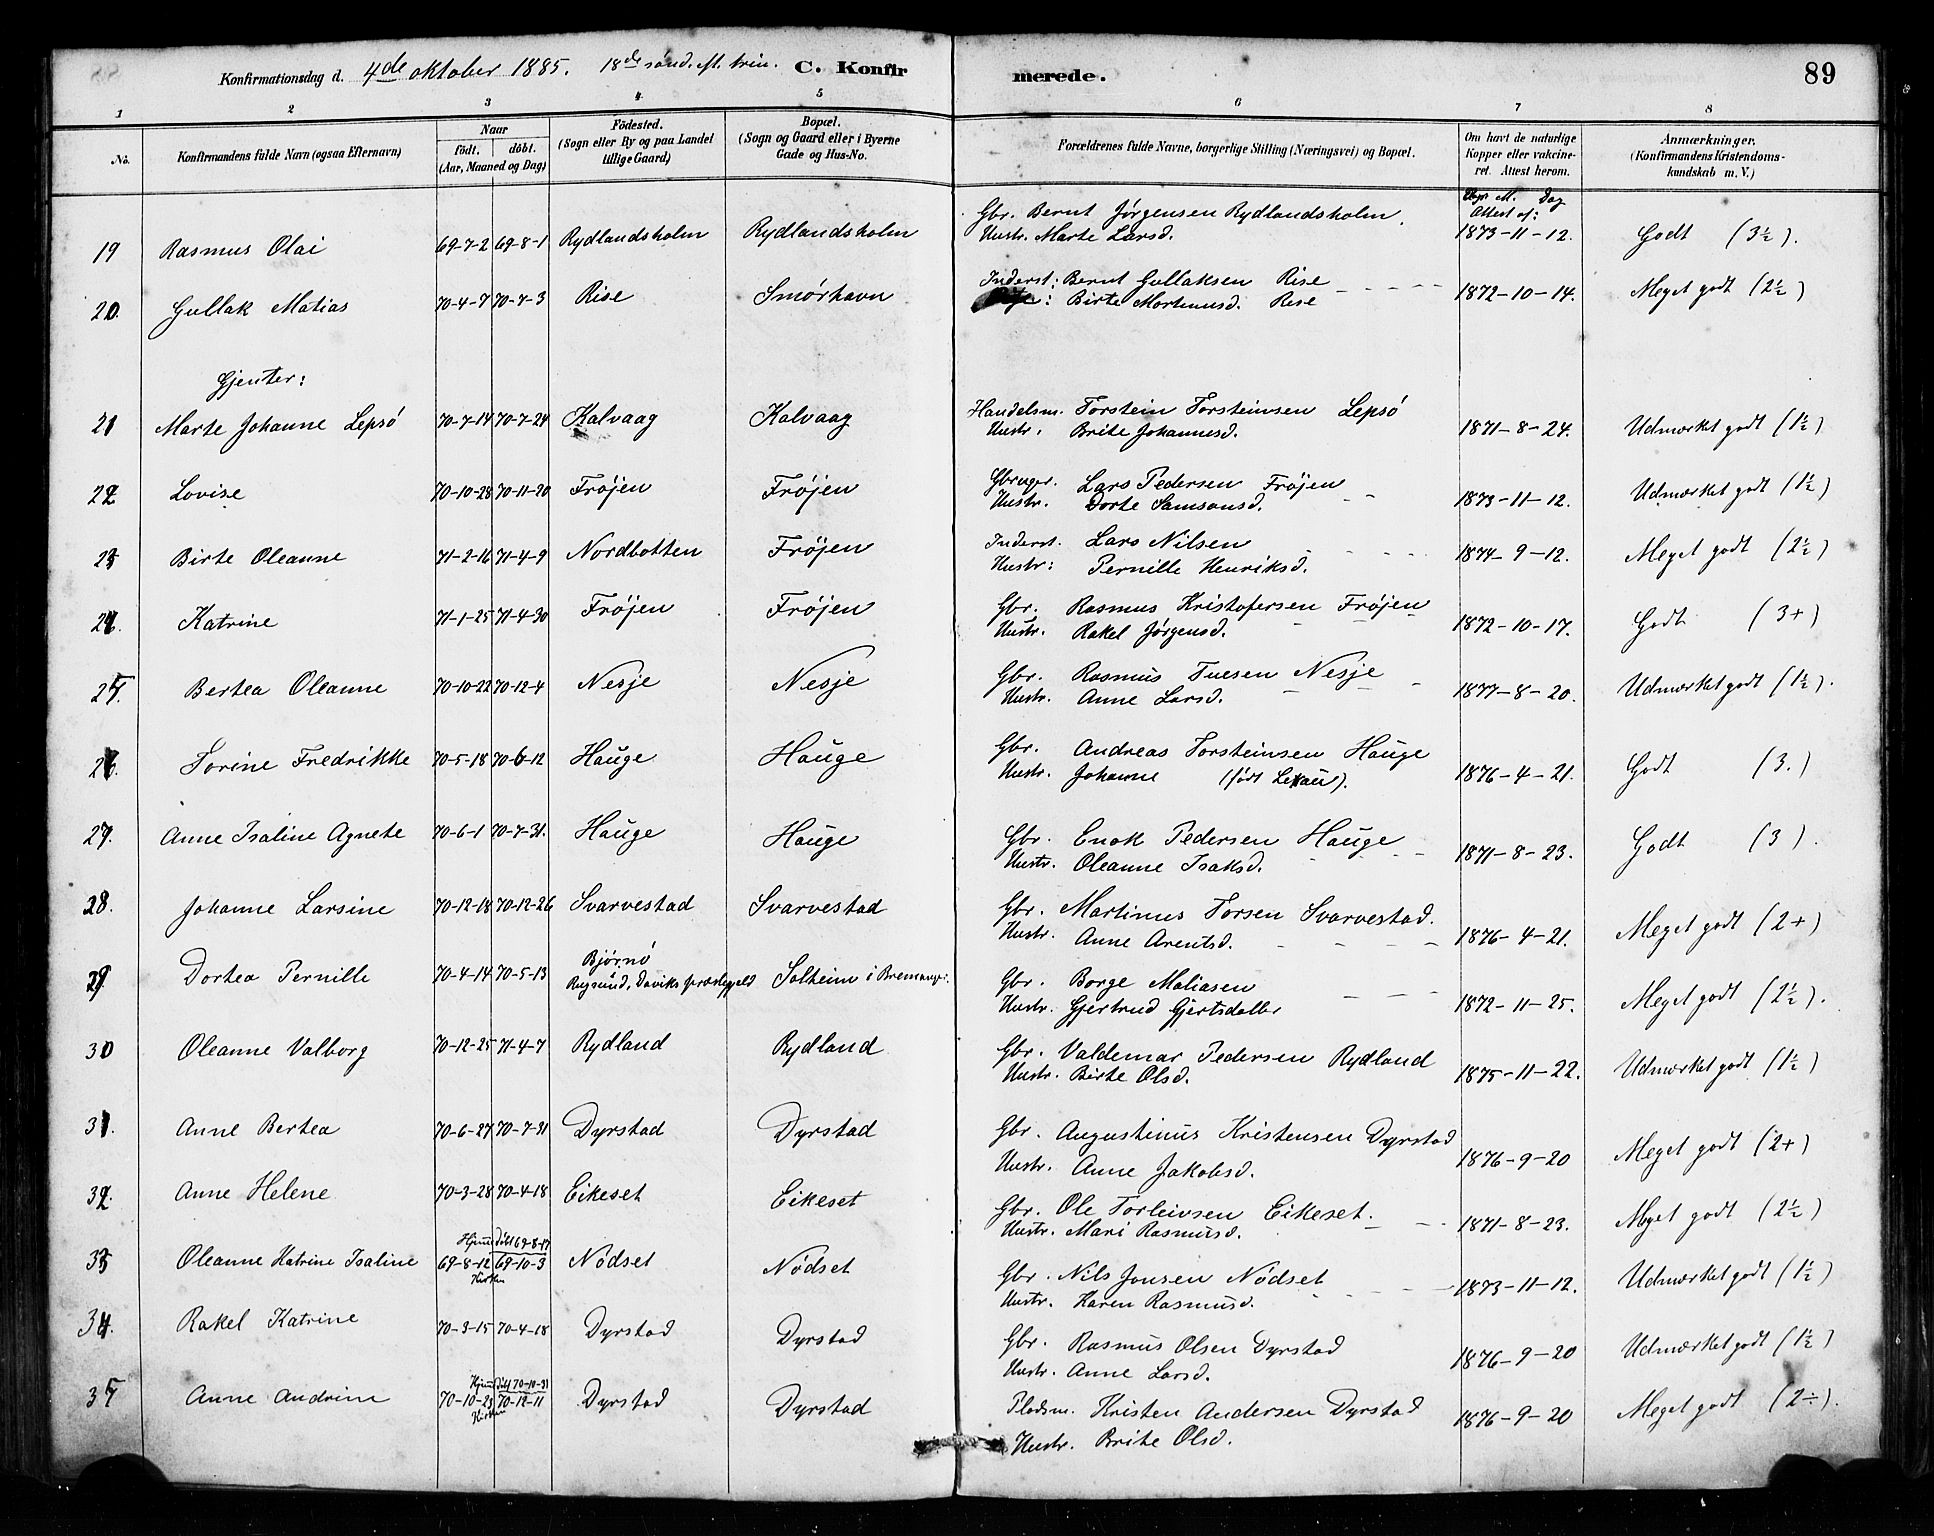 Konfirmationsdag d. 4de oktober 1885. 18de sønd. eft. trin. C. Konfirmerede. 89
1 2 3 4 5 6 7 8
No. Konfirmandens fulde Navn (ogsaa Efternavn) Naar födt. döbt. (Aar, Maaned og Dag) Födested. (Sogn eller By og paa Landet tillige Gaard) Bopæl. (Sogn og Gaard eller i Byerne Gade og Hus-No. Forældrenes fulde Navne, borgerlige Stilling (Næringsvei) og Bopæl. Om havt de naturlige Kopper eller vakcineret. Attest herom. Anmærkninger. (Konfirmandens Kristendomskundskab m. V.)
M. Dag
Attest af:
19 Rasmus Olai 69-7-2 69-8-1 Rydlandsholm Rydlandsholm Gbr. Bernt Jørgensen Rydlandsholm
Hustr. Marte Larsd. 1873-11-12. Godt (3½).
20. Gullak Matias 70-4-7 70-7-3 Rise Smørhavn Inderst: Bernt Gullaksen Rise
Birte Mortinusd. Rise 1872-10-14. Meget godt (2½)
Gjenter:
21 Marte Johanne Lepsö 70-7-14 70-7-24 Kalvaag Kalvaag Handelsm. Torstein Torsteinsen Lepsö
Hustr. Brite Johannesd. 1871-8-24. Udmærket godt (1½)
22 Lovise 70-10-28 70-11-20 Frøjen Frøjen Gbruger. Lars Pedersen Frøjen
Hustr. Dorte Samsonsd. 1873-11-12. Udmærket godt (1½)
23 Birte Oleanne 71-2-16 71-4-9 Nordbotten Frøjen Inderst. Lars Nilsen
Hustr: Pernille Henriksd. 1874-9-12. Meget godt (2½)
24. Katrine 71-1-25 71-4-30 Frøjen Frøjen Gbr. Rasmus Kristofersen Frøjen
Hustr. Rakel Jørgensd. 1872-10-17. Godt (3+)
25. Bertea Oleanne 70-10-22 70-12-4 Nesje Nesje Gbr. Rasmus Tuesen Nesje
Hustr. Anne Larsd. 1877-8-20. Udmærket godt (1½).
26. Torine Fredrikke 70-5-18 70-6-12 Hauge Hauge Gbr. Andreas Torsteinsen Hauge
Hustr. Johanne (født Lexau). 1876-4-21. Godt (3.)
27. Anne Isaline Agnete 70-6-1 70-7-31. Hauge Hauge Gbr. Enok Pedersen Hauge
Hustr. Oleanne Isaksd. 1871-8-23. Godt (3).
28. Johanne Larsine 70-12-18 70-12-26 Svarvestad Svarvestad Gbr. Martinus Torsen Svarvestad.
Hustr. Anne Arentsd. 1876-4-21. Meget godt (2+)
29. Dortea Pernille 70-4-14 70-5-13 Bjørnø
Rugsund, Daviks præstegjeld Solheim i Bremanger. Gbr. Borge Matiasen
Hustr. Gjertrud Gjertsdatter 1872-11-25. Meget godt (2½).
30 Oleanne Valborg 70-12-25 71-4-7 Rydland Rydland Gbr. Valdemar Pedersen Rydland
Hustr. Birte Olsd. 1875-11-22. Udmærket godt (1½)
31. Anne Bertea 70-6-27 70-7-31 Dyrstad Dyrstad Gbr. Augustinus Kristensen Dyrstad
Hustr. Anne Jakobsd. 1876-9-20 Meget godt (2+)
32. Anne Helene 70-3-28 70-4-18 Eikeset Eikeset Gbr. Ole Torleivsen Eikeset.
Hustr. Mari Rasmusd. 1871-8-23. Meget godt (2½)
Hjemdöbt 69-8-17
33 Oleanne Katrine Isaline 69-8-12 69-10-3 Nödset Nödset Gbr. Nils Jonsen Nödset
Kirken Hustr. Karen Rasmusd. 1873-11-12. Udmærket godt (1½)
34. Rakel Katrine 70-3-15 70-4-18 Dyrstad Dyrstad Gbr. Rasmus Olsen Dyrstad
Hustr. Anne Larsd. 1876-9-20 Udmærket godt (1½)
Hjemdöbt 70-10-31
35 Anne Andrine 70-10-23 70-12-11 Dyrstad Dyrstad Pladsm. Kristen Andersen Dyrstad
Kirken Hustr. Brite Olsd. 1876-9-20 Meget godt (2÷).